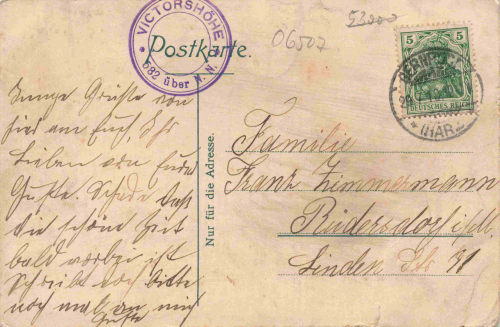 VICTORSHÖHE
* 582 über N.N. *
Postkarte.
06507
53000
5 5
DEUTSCHES REICH
BERNRODE
* (HARZ)
Nur für die Adresse.
Grüße von
hier an Euch, Ihr
Lieben von Eurer
Guste. Schade daß
die schöne Zeit
bald vorbei ist
Schreibt noch bitte
noch mal an mich
Guste
Familie
Franz Zimmermann
Rüdersdorf
Linden Str.